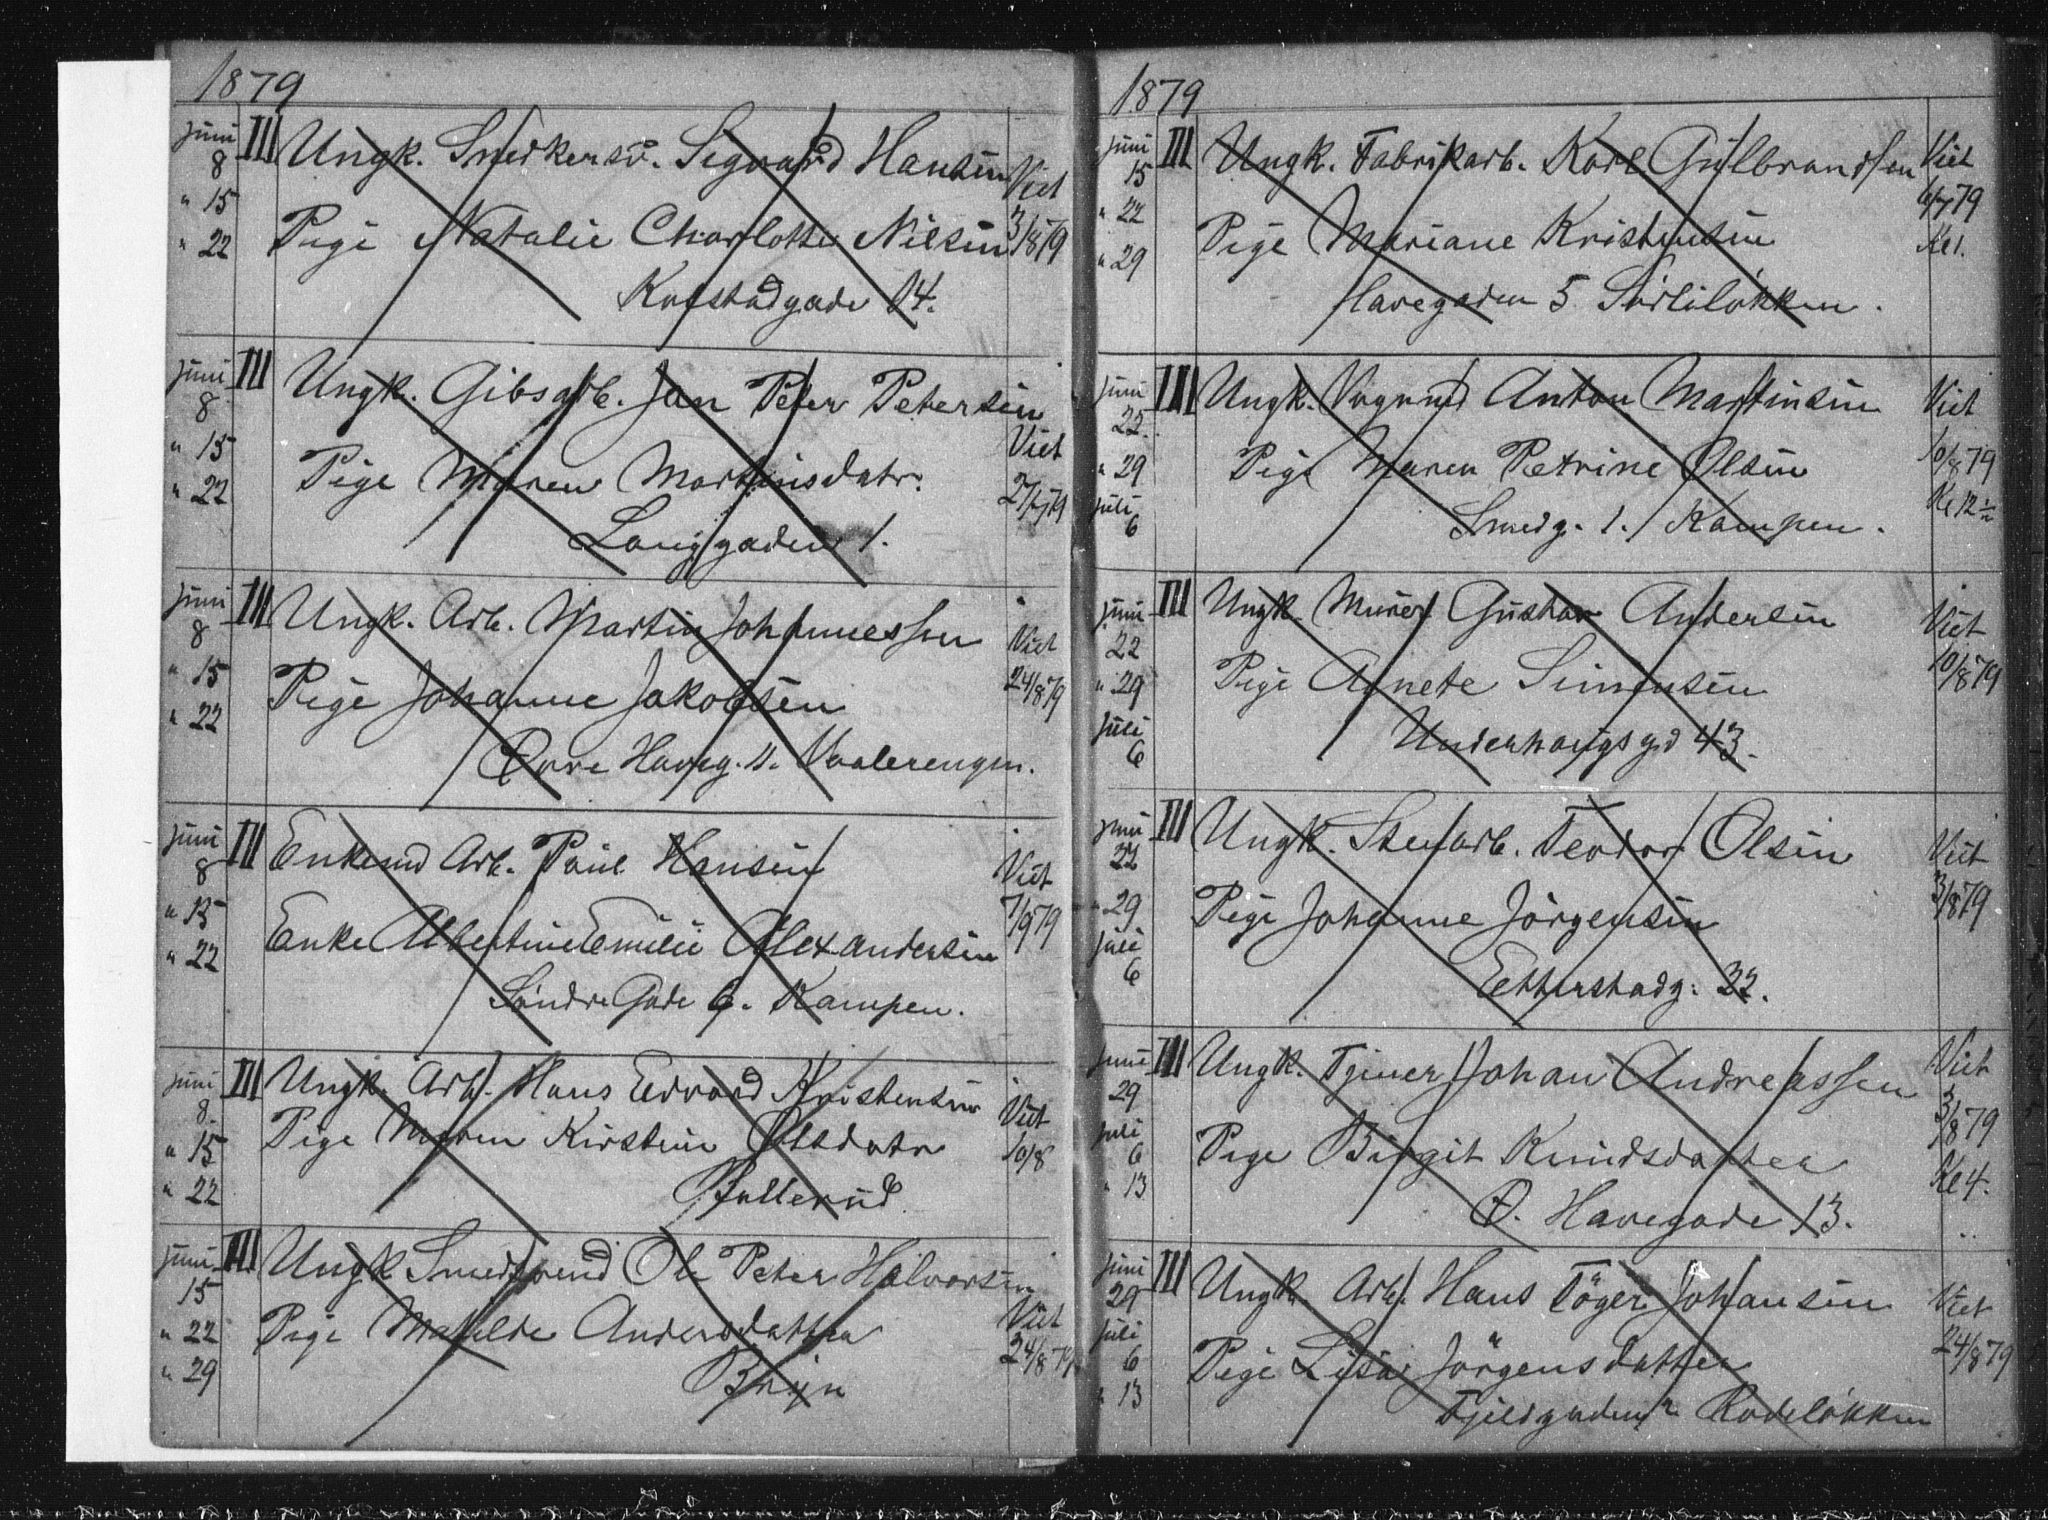 1879
Juni III Ungk. Snedkersv. Sigvard Hansen
8 Viet
" 15 Pige Natalie Charlotte Nilsen 3/8 79
" 22 Kolstadgade 14.
Juni III Ungk. Gibsarb. Jan Peter Petersen
8 Viet
" 15 Pige Maren Martinsdatr. 27/7 79
" 22 Langgaden 1.
Juni III Ungk. Arb. Martin Johannessen
8 Viet
" 15 Pige Johanne Jakobsen 24/8 79
" 22 Øvre Haveg. 11. Vaalerengen.
Juni III Enkemd Arb. Paul Hansen
8 Viet
" 15 Enke Albertine Emilie Alexandersen 7/9 79
" 22 Søndre Gade 6. Kampen.
Juni III Ungk. Arb. Hans Edvard Kristensen
8. Viet
" 15 Pige Maren Kirstine Olsdatr 10/8
" 22 Ballerud
Juni III Ungk. Smedsvend Ole Peter Halvorsen
15 Viet
" 22 Pige Matilde Andersdatter 24/8 79
" 29 Bryn
1879
Juni III Ungk. Fabrikarb. Karl Gulbrandsen Viet
15 6/7 79
" 22 Pige Mariane Kristensen Kl 1.
" 29 Havegaden 5 Sørliløkken.
Juni III Ungk. Vognmd Anton Martinsen Viet
22. 10/8 79
" 29 Pige Maren Petrine Olsen Kl 12 ½
Juli 6 Smedg. 1. Kampen.
Juni III Ungk. Murer Gustav Andersen Viet
22 10/8 79
" 29 Pige Agnete Simensen
Juli 6 Underhaugsgd 43.
Juni III Ungk. Stenarb. Teodor Olsen Viet
22 3/8 79
" 29 Pige Johanne Jørgensen
Juli 6 Etterstadg. 32.
Juni III Ungk. Tjener Johan Andreassen Viet
29 3/8 79
Juli 6 Pige Birgit Knudsdatter Kl 4.
" 13 Ø. Havegade 13.
Juni III Ungk. Arb. Hans Töger Johansen Viet
29 24/8 79
Juli 6 Pige Lisa Jörgensdatter
" 13 Fjeldgaden 2 Rodeløkken